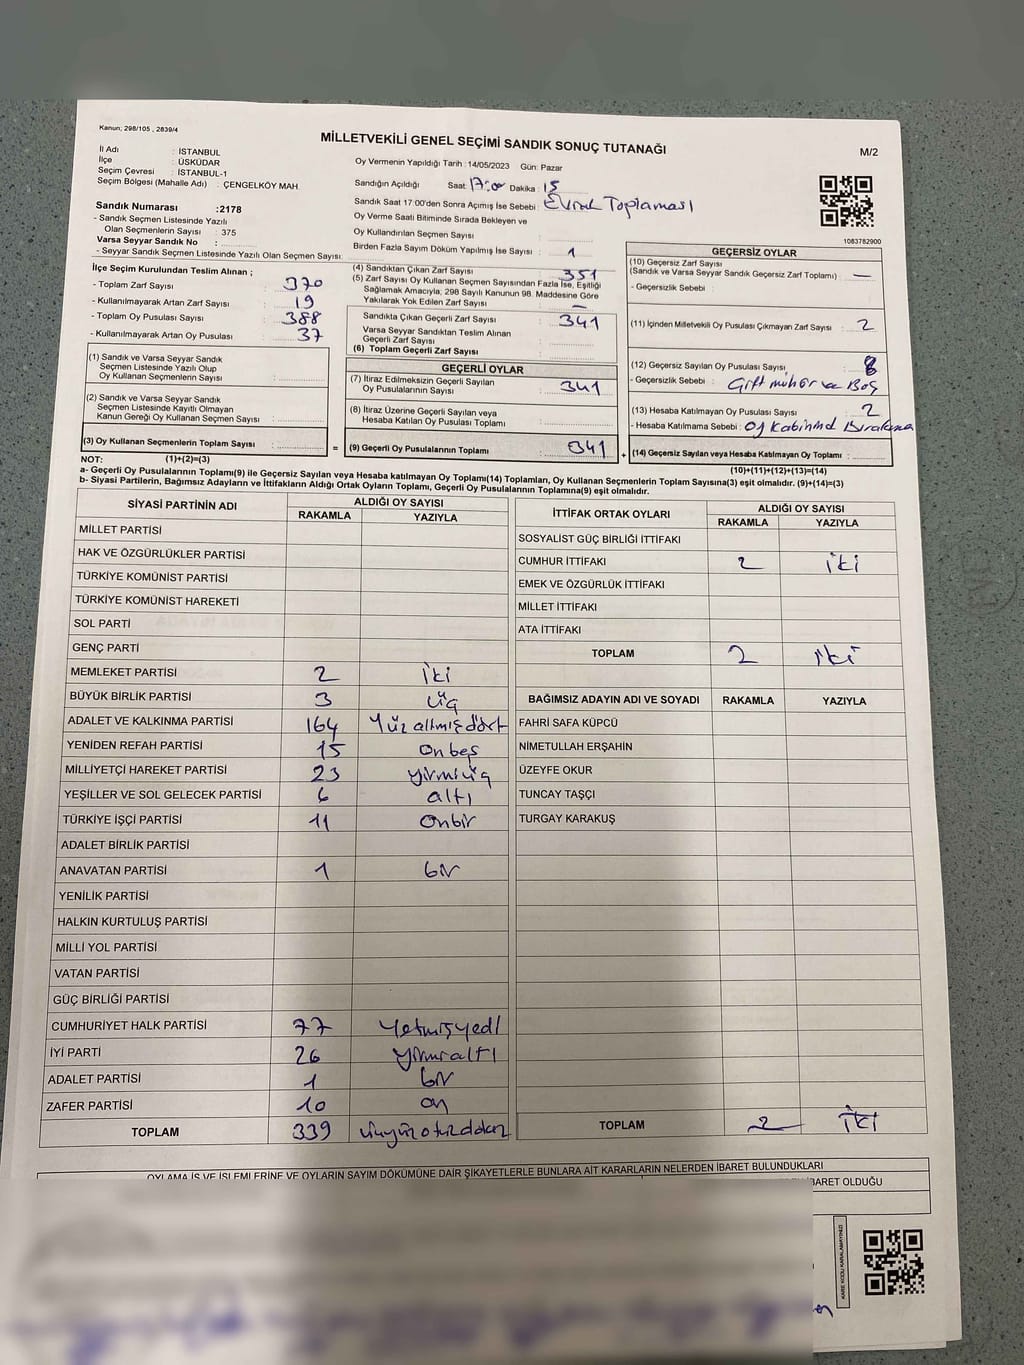 Kanun; 298/105 , 2839/4
MİLLETVEKİLİ GENEL SEÇİMİ SANDIK SONUÇ TUTANAĞI
M/2
İl Adı : İSTANBUL
İlçe : ÜSKÜDAR
Seçim Çevresi : İSTANBUL-1
Seçim Bölgesi (Mahalle Adı) : ÇENGELKÖY MAH.
Sandık Numarası :2178
- Sandık Seçmen Listesinde Yazılı
Olan Seçmenlerin Sayısı : 375
Varsa Seyyar Sandık No :
- Seyyar Sandık Seçmen Listesinde Yazılı Olan Seçmen Sayısı.
İlçe Seçim Kurulundan Teslim Alınan ;
- Toplam Zarf Sayısı : 370
- Kullanılmayarak Artan Zarf Sayısı : 19
- Toplam Oy Pusulası Sayısı : 388
- Kullanılmayarak Artan Oy Pusulası : 37
(1) Sandık ve Varsa Seyyar Sandık
Seçmen Listesinde Yazılı Olup
Oy Kullanan Seçmenlerin Sayısı :
(2) Sandık ve Varsa Seyyar Sandık
Seçmen Listesinde Kayıtlı Olmayan
Kanun Gereği Oy Kullanan Seçmen Sayısı :
(3) Oy Kullanan Seçmenlerin Toplam Sayısı :
(1)+(2)=(3)
Oy Vermenin Yapıldığı Tarih : 14/05/2023 Gün: Pazar
Sandığın Açıldığı Saat 17:00 Dakika : 15
Sandık Saat 17:00'den Sonra Açımış İse Sebebi : Evrak Toplaması
Oy Verme Saati Bitiminde Sırada Bekleyen ve
Oy Kullandırılan Seçmen Sayısı :
Birden Fazla Sayım Döküm Yapılmış İse Sayısı : 1
(4) Sandıktan Çıkan Zarf Sayısı : 351
(5) Zarf Sayısı Oy Kullanan Seçmen Sayısından Fazla İse, Eşitliği
Sağlamak Amacıyla; 298 Sayılı Kanunun 98. Maddesine Göre
Yakılarak Yok Edilen Zarf Sayısı : —
Sandıkta Çıkan Geçerli Zarf Sayısı : 341
Varsa Seyyar Sandıktan Teslim Alınan
Geçerli Zarf Sayısı :
(6) Toplam Geçerli Zarf Sayısı :
GEÇERLİ OYLAR
(7) İtiraz Edilmeksizin Geçerli Sayılan
Oy Pusulalarının Sayısı : 341
(8) İtiraz Üzerine Geçerli Sayılan veya
Hesaba Katılan Oy Pusulaları Toplamı :
= (9) Geçerli Oy Pusulalarının Toplamı : 341
1083782900
GEÇERSİZ OYLAR
(10) Geçersiz Zarf Sayısı
(Sandık ve Varsa Seyyar Sandık Geçersiz Zarf Toplamı) : —
- Geçersizlik Sebebi :
(11) İçinden Milletvekili Oy Pusulası Çıkmayan Zarf Sayısı : 2
(12) Geçersiz Sayılan Oy Pusulası Sayısı : 8
- Geçersizlik Sebebi : Çift mühür ve Boş
(13) Hesaba Katılmayan Oy Pusulası Sayısı : 2
- Hesaba Katılmama Sebebi : Oy Kabininde
+ (14) Geçersiz Sayılan veya Hesaba Katılmayan Oy Toplamı :
(10)+(11)+(12)+(13)=(14)
NOT:
a- Geçerli Oy Pusulalarının Toplamı(9) ile Geçersiz Sayılan veya Hesaba katılmayan Oy Toplamı(14) Toplamları, Oy Kullanan Seçmenlerin Toplam Sayısına(3) eşit olmalıdır. (9)+(14)=(3)
b- Siyasi Partilerin, Bağımsız Adayların ve İttifakların Aldığı Ortak Oyların Toplamı, Geçerli Oy Pusulalarının Toplamına(9) eşit olmalıdır.
SİYASİ PARTİNİN ADI
ALDIĞI OY SAYISI
RAKAMLA YAZIYLA
MİLLET PARTİSİ
HAK VE ÖZGÜRLÜKLER PARTİSİ
TÜRKİYE KOMÜNİST PARTİSİ
TÜRKİYE KOMÜNİST HAREKETİ
SOL PARTİ
GENÇ PARTİ
MEMLEKET PARTİSİ 2 iki
BÜYÜK BİRLİK PARTİSİ 3 üç
ADALET VE KALKINMA PARTİSİ 164 Yüz altmış dört
YENİDEN REFAH PARTİSİ 15 on beş
MİLLİYETÇİ HAREKET PARTİSİ 23 yirmi üç
YEŞİLLER VE SOL GELECEK PARTİSİ 6 altı
TÜRKİYE İŞÇİ PARTİSİ 11 onbir
ADALET BİRLİK PARTİSİ
ANAVATAN PARTİSİ 1 bir
YENİLİK PARTİSİ
HALKIN KURTULUŞ PARTİSİ
MİLLİ YOL PARTİSİ
VATAN PARTİSİ
GÜÇ BİRLİĞİ PARTİSİ
CUMHURİYET HALK PARTİSİ 77 Yetmişyedi
İYİ PARTİ 26 yirmi altı
ADALET PARTİSİ 1 bir
ZAFER PARTİSİ 10 on
TOPLAM 339
İTTİFAK ORTAK OYLARI
ALDIĞI OY SAYISI
RAKAMLA YAZIYLA
SOSYALİST GÜÇ BİRLİĞİ İTTİFAKI
CUMHUR İTTİFAKI 2 iki
EMEK VE ÖZGÜRLÜK İTTİFAKI
MİLLET İTTİFAKI
ATA İTTİFAKI
TOPLAM 2 iki
BAĞIMSIZ ADAYIN ADI VE SOYADI RAKAMLA YAZIYLA
FAHRİ SAFA KÜPCÜ
NİMETULLAH ERŞAHİN
ÜZEYFE OKUR
TUNCAY TAŞÇI
TURGAY KARAKUŞ
TOPLAM 2 iki
OYLAMA İŞ VE İŞLEMLERİNE VE OYLARIN SAYIM DÖKÜMÜNE DAİR ŞİKAYETLERLE BUNLARA AİT KARARLARIN NELERDEN İBARET BULUNDUKLARI
İBARET OLDUĞU